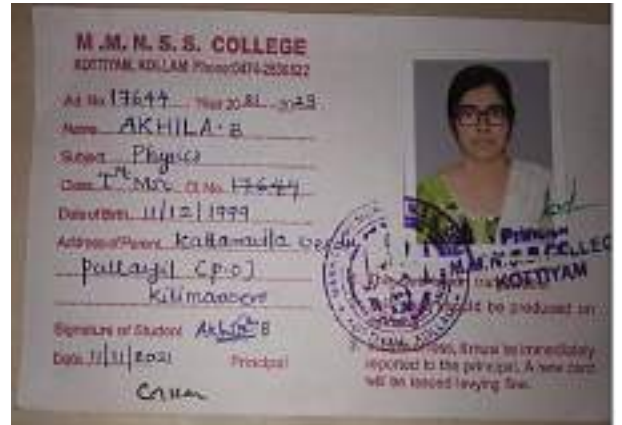 M.M.N.S.S. COLLEGE
KOTTIYAM, KOLLAM Phone:0474-
Ad. No. 17644 Year 20 21 - 2023
Name AKHILA. B
Subject Physics
Class Ist MSc Cl. No. 17644
Date of Birth 11/12/1999
Address of Parent Kattamvilla
(P.O)
Signature of Student Akhila B
Date 11/11/2021 Principal
Principal
M.M.N.S.S COLLEGE
KOTTIYAM
should be produced on
loss, it must be immediately
reported to the principal. A new card
will be issued levying fine.